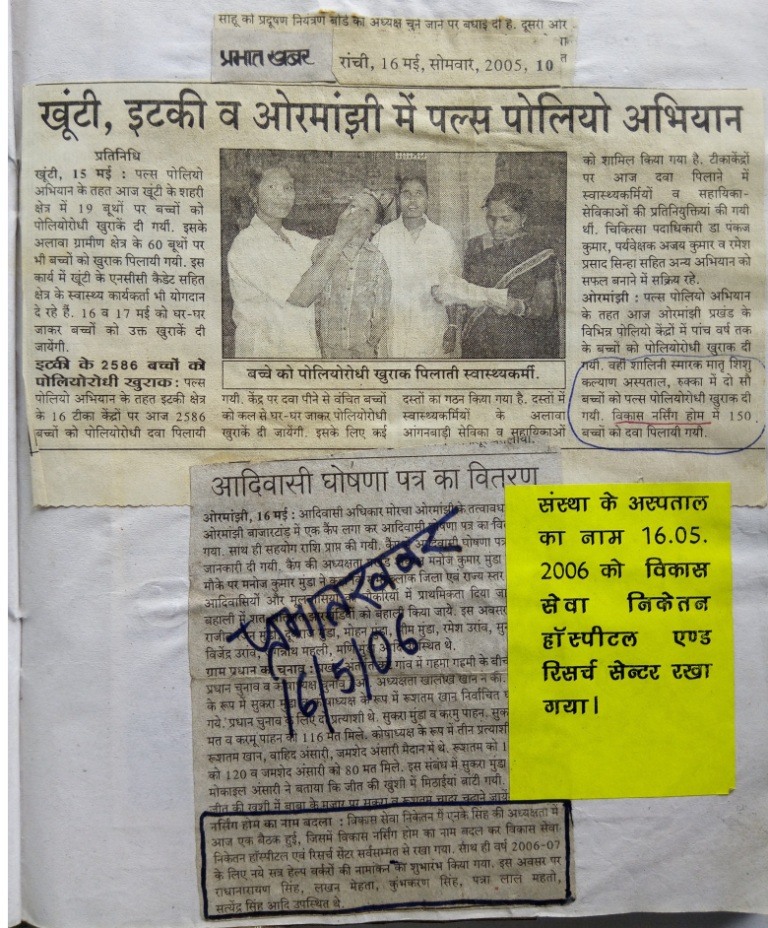 साहू को प्रदूषण नियंत्रण बोर्ड का अध्यक्ष चुने जाने पर बधाई दी है. दूसरी ओर
प्रभात खबर
रांची, 16 मई, सोमवार, 2005, 10
खूंटी, इटकी व ओरमांझी में पल्स पोलियो अभियान
प्रतिनिधि
खूंटी, 15 मई : पल्स पोलियो
अभियान के तहत आज खूंटी के शहरी
क्षेत्र में 19 बूथों पर बच्चों को
पोलियोरोधी खुराकें दी गयीं. इसके
अलावा ग्रामीण क्षेत्र के 60 बूथों पर
भी बच्चों को खुराक पिलायी गयी. इस
कार्य में खूंटी के एनसीसी कैडेट सहित
क्षेत्र के स्वास्थ्य कार्यकर्ता भी योगदान
दे रहे हैं. 16 व 17 मई को घर-घर
जाकर बच्चों को उक्त खुराकें दी
जायेंगी.
इटकी के 2586 बच्चों को
पोलियोरोधी खुराक : पल्स
पोलियो अभियान के तहत इटकी क्षेत्र
के 16 टीका केंद्रों पर आज 2586
बच्चों को पोलियोरोधी दवा पिलायी
बच्चे को पोलियोरोधी खुराक पिलाती स्वास्थ्यकर्मी.
गयी. केंद्र पर दवा पीने से वंचित बच्चों
को कल से घर-घर जाकर पोलियोरोधी
खुराकें दी जायेंगी. इसके लिए कई
दस्तों का गठन किया गया है. दस्तों में
स्वास्थ्यकर्मियों के अलावा
आंगनबाड़ी सेविका व सहायिकाओं
को शामिल किया गया है. टीकाकेंद्रों
पर आज दवा पिलाने में
स्वास्थ्यकर्मियों व सहायिका-
सेविकाओं की प्रतिनियुक्तियां की गयी
थीं. चिकित्सा पदाधिकारी डा पंकज
कुमार, पर्यवेक्षक अजय कुमार व रमेश
प्रसाद सिन्हा सहित अन्य अभियान को
सफल बनाने में सक्रिय रहे.
ओरमांझी : पल्स पोलियो अभियान
के तहत आज ओरमांझी प्रखंड के
विभिन्न पोलियो केंद्रों में पांच वर्ष तक
के बच्चों को पोलियोरोधी खुराक दी
गयी. वहीं शालिनी स्मारक मातृ शिशु
कल्याण अस्पताल, रुक्का में दो सौ
बच्चों को पल्स पोलियोरोधी खुराक दी
गयी. विकास नर्सिंग होम में 150
बच्चों को दवा पिलायी गयी.
आदिवासी घोषणा पत्र का वितरण
ओरमांझी, 16 मई : आदिवासी अधिकार मोरचा ओरमांझी के तत्वावध
ओरमांझी बाजारटांड में एक कैंप लगा कर आदिवासी घोषणा पत्र का वि
गया. साथ ही सहयोग राशि प्राप्त की गयी. घोषणा पत्र
जानकारी दी गयी. कैंप की अध्यक्षता मनोज कुमार मुंडा
मौके पर मनोज कुमार मुंडा ने जिला एवं राज्य स्तर
आदिवासियों और नौकरियों में प्राथमिकता दिया जा
को बहाली किया जाये. इस अवसर
मुंडा, मोहन मुंडा, भीम मुंडा, रमेश उरांव, सु
विजेंद्र उरांव, महली, उपस्थित थे.
प्रभात खबर
16/5/06
ग्राम प्रधान का चुनाव : गांव में गहमा गहमी के बीच
प्रधान चुनाव व अध्यक्षता खालेख खान ने की.
के रूप में सुकरा के रूप में रूशतम खान निर्वाचित
गये. प्रधान चुनाव के लिए दो प्रत्याशी थे. सुकरा मुंडा व करमू पाहन. सुक
मत व करमू पाहन को 116 मत मिले. कोषाध्यक्ष के रूप में तीन प्रत्याशी
रूशतम खान, वाहिद अंसारी, जमशेद अंसारी मैदान में थे. रूशतम को 1
को 120 व जमशेद अंसारी को 80 मत मिले. इस संबंध में सुकरा मुंडा
मोकाइल अंसारी ने बताया कि जीत की खुशी में मिठाईयां बांटी गयी.
जीत की खुशी में बाबा के मजार पर
नर्सिंग होम का नाम बदला : विकास सेवा निकेतन में एनके सिंह की अध्यक्षता में
आज एक बैठक हुई, जिसमें विकास नर्सिंग होम का नाम बदल कर विकास सेवा
निकेतन हॉस्पीटल एवं रिसर्च सेंटर सर्वसम्मत से रखा गया. साथ ही वर्ष 2006-07
के लिए नये सत्र हेल्प वर्करों की नामांकन का शुभारंभ किया गया. इस अवसर पर
राधानारायण सिंह, लखन मेहता, कुंभकरण सिंह, पन्ना लाल महतो,
सत्येंद्र सिंह आदि उपस्थित थे.
संस्था के अस्पताल
का नाम 16.05.
2006 को विकास
सेवा निकेतन
हॉस्पीटल एण्ड
रिसर्च सेन्टर रखा
गया।